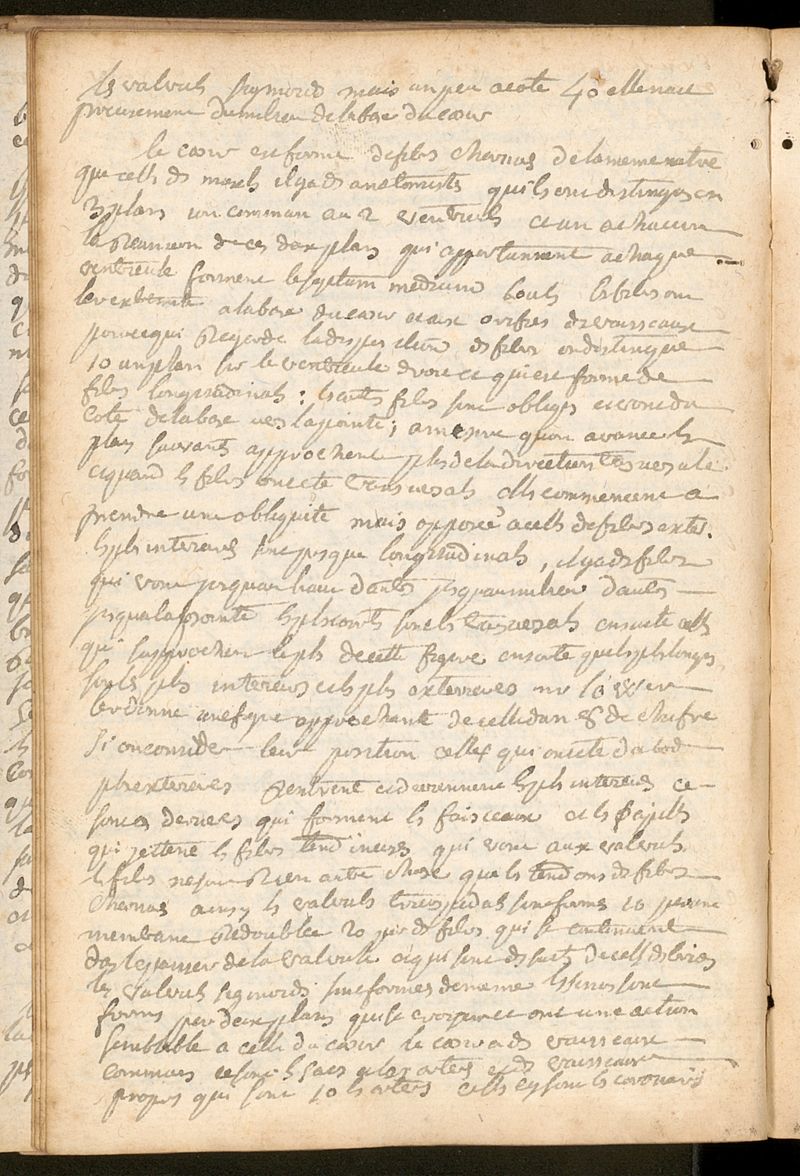 les valvuls sigmoids mais un peu acote 4o elle nait
precisement dumilieu delabase du cœur
le cœur est forme defibres charnus delamemenature
que cells ds muscls ilyads anatomists quils ont distingues en
3 plans un commun au 2 ventriculs et un a chacun
la reunion de ces deux plans qui appartiennent achaque
ventricule forment leseptum medium touts les fibres ont
leur extremite alabase ducœur et aux orifices des vaisseaux
pour ce qui regarde ladisposition ds fibres on distingue
1o un plan sur le ventricule droit ce qui est forme de
fibres longitudinals : touts fibres sont obliques et vont du
coté delabase vers lapointe ; amesure quon avance ls
plans suivants approchent plus de la direction transversale
et quand ls fibres ont ete transversals ells commencent a
prendre une obliquite mais opposée a cells de fibres exter.
ls pls interieures sont presque longitudinals, ilyads fibres
qui vont jusquau haut dautrs jusquaumilieu dautrs
jusqualapointe ls pls courts sont ls transversals ensuite cells
qui sapprochent le pls de cette figure ensuite quels pls longues
sont ls pls interieurs et ls pls exterieures
leur donne une figure approchante de celle dun 8 de chifre
Si on considere leur position celles qui ont ete dabord
pls exterieures rentrent et deviennent ls pls interieures ce
sont ces dernieres qui forment ls faisceaux et ls
qui jettent ls fibres tendineuses qui vont aux valvuls
ls fibres ne sont rien autre chose que ls tendons ds fibres
charnus ainsy ls valvuls tricuspidals sont forms 1o par une
membrane redoublée 2o par ds fibres qui se continuent
dans lepaisseur de la valvule et qui sont ds suits de cells
les valvuls sigmoids sont formes de meme ls sinus sont
forms par deux plans qui se croisent et ont une action
semblable a celle du cœur le cœur a ds vaisseaux
communs ce sont ls et ls arters et ds vaisseaux
propres qui sont 1o ls arters cells cy sont ls coronairs